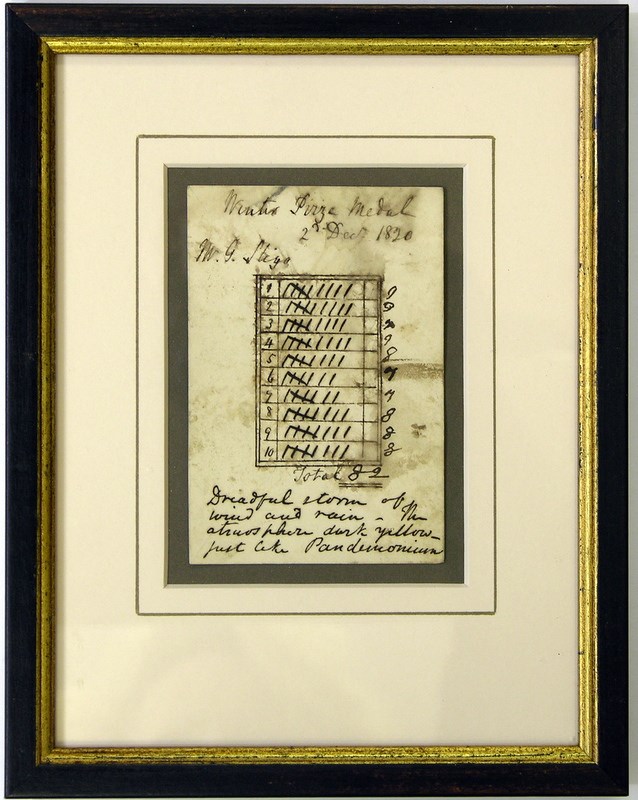 Winter Prize Medal
2d Decr 1820
W. G. Sligo
1 9
2 9
3
4 9
5 8
6 7
7 7
8 8
9 8
10 8
Total 82
Dreadful storm of
wind and rain – The
atmosphere dark yellow –
just like Pandemonium